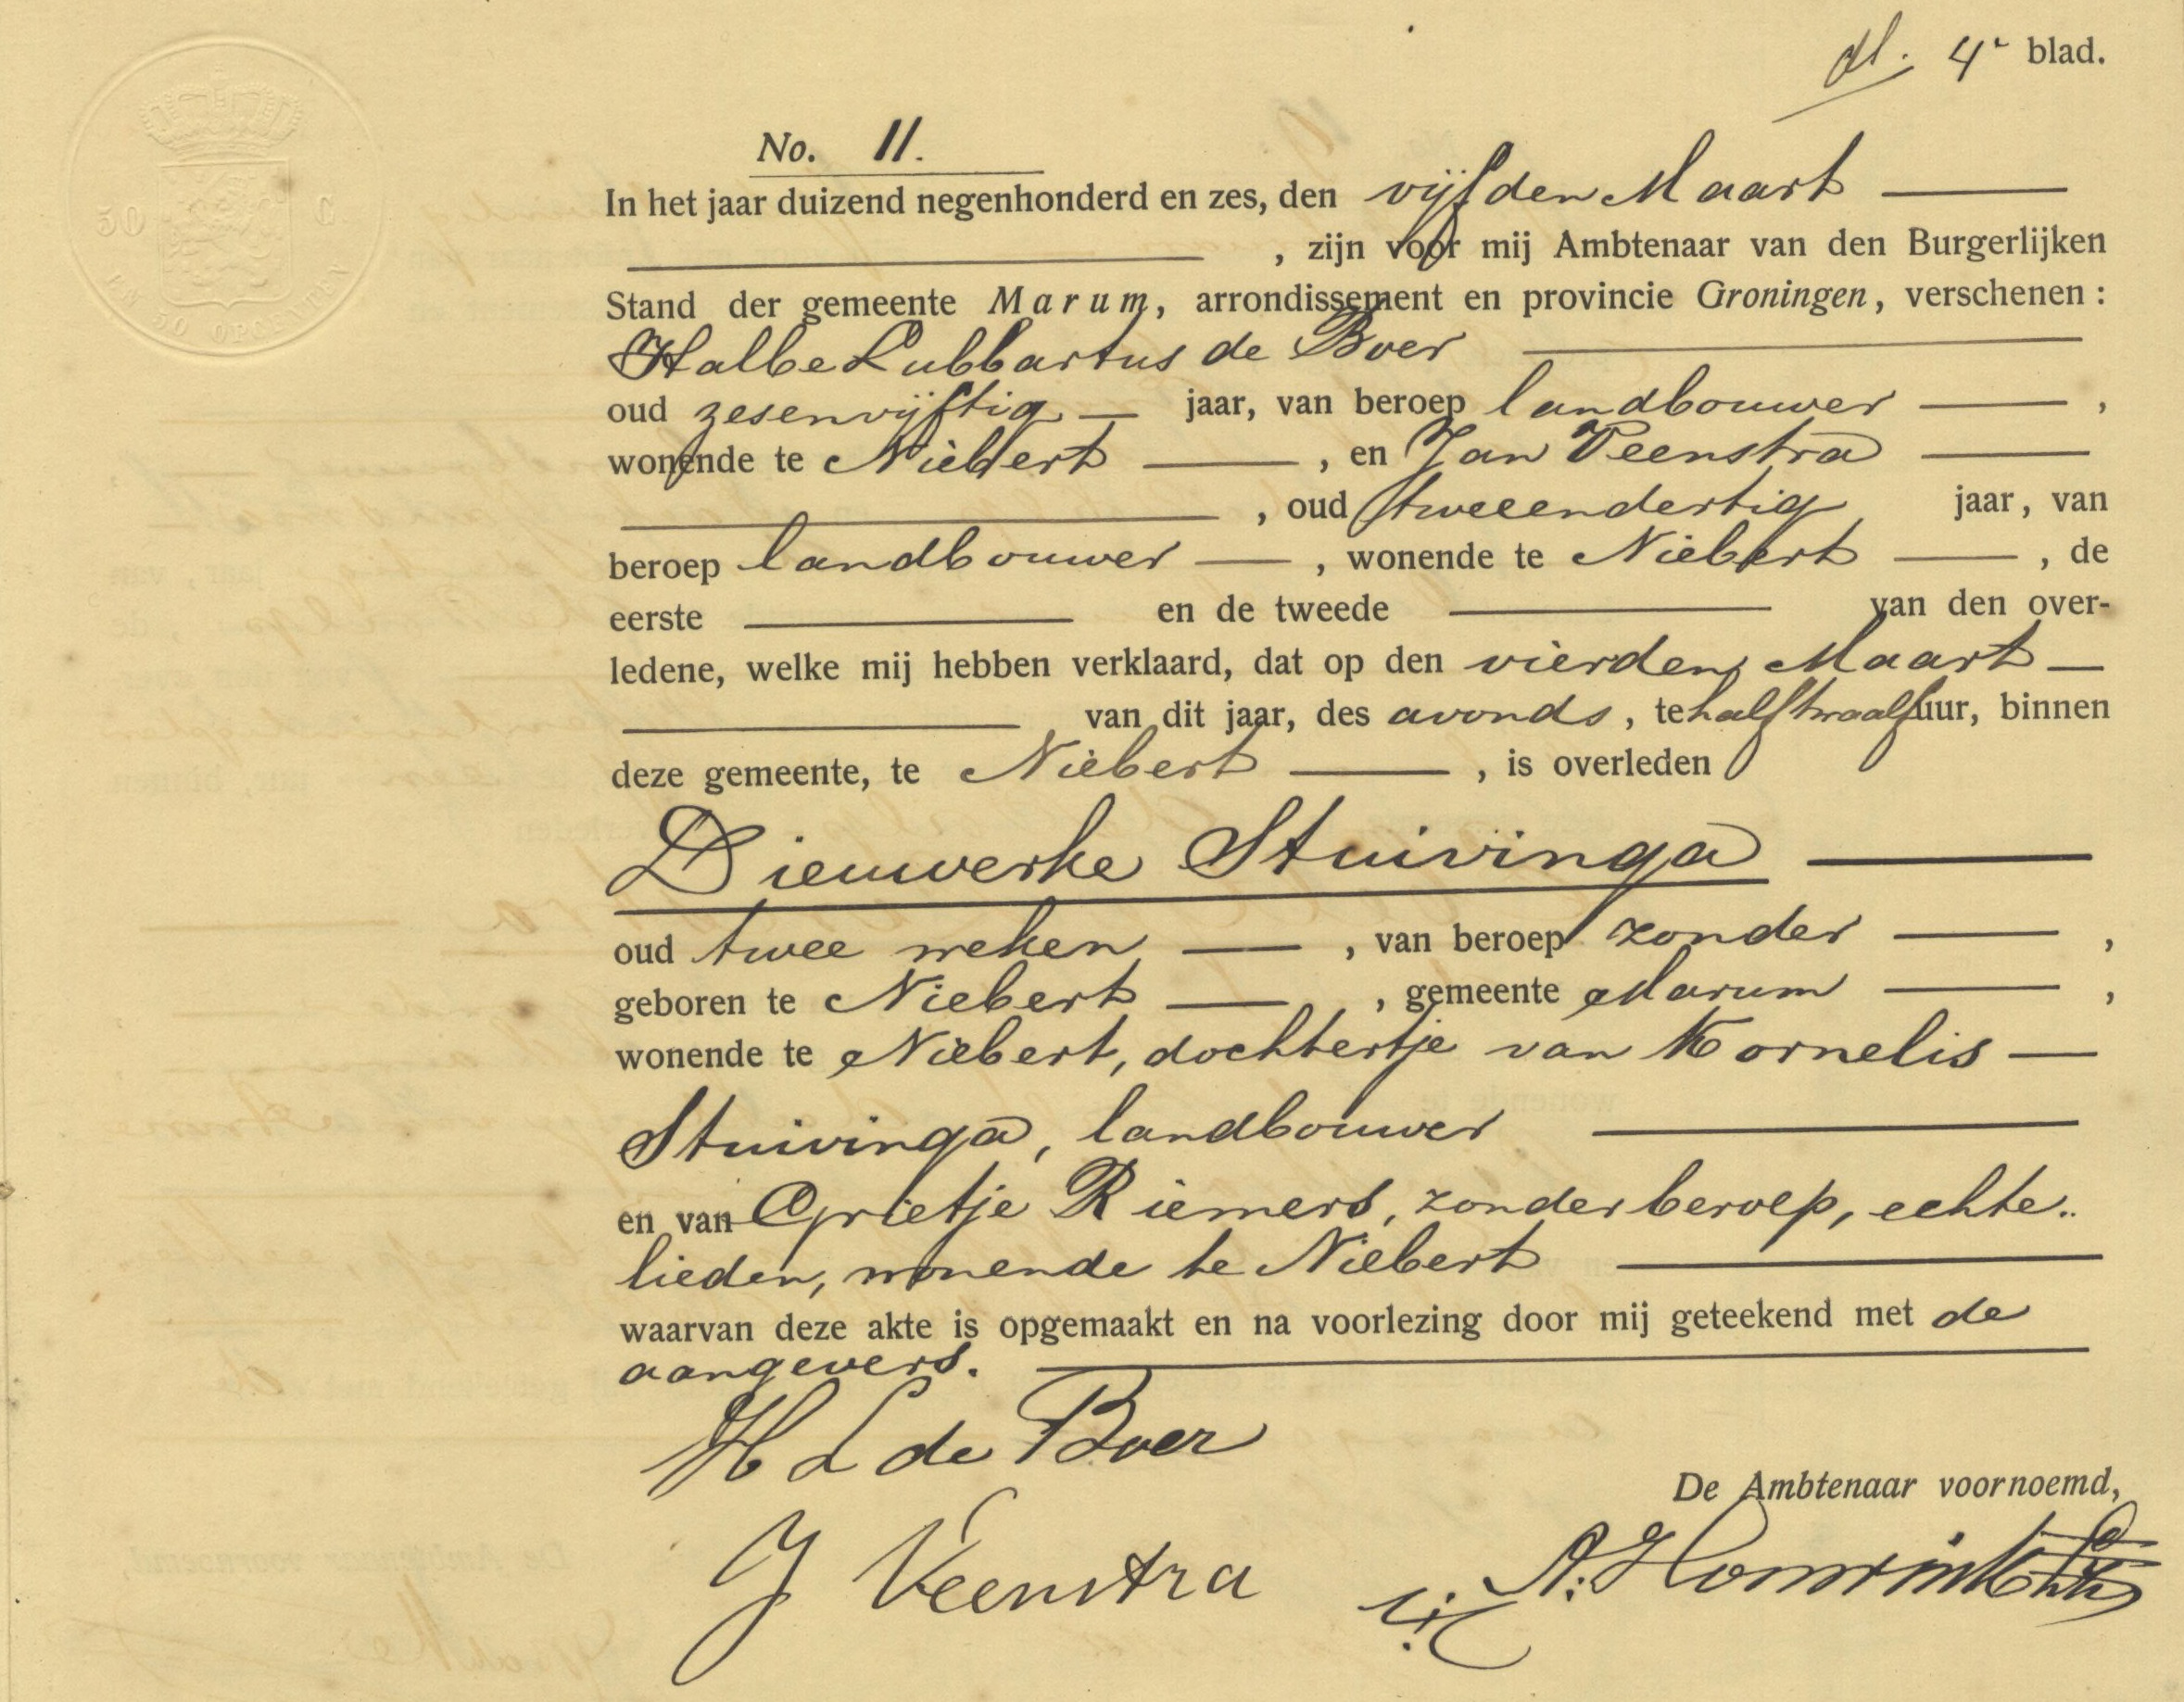 4e blad.
No. 11.
In het jaar duizend negenhonderd en zes, den vijfden Maart
, zijn voor mij Ambtenaar van den Burgerlijken
Stand der gemeente Marum, arrondissement en provincie Groningen, verschenen :
Halbe Lubbartus de Boer
oud zesenvijftig jaar, van beroep landbouwer ,
wonende te Niebert , en Jan Veenstra
, oud tweeendertig jaar, van
beroep landbouwer , wonende te Niebert , de
eerste en de tweede van den over-
ledene, welke mij hebben verklaard, dat op den vierden Maart
van dit jaar, des avonds, te half twaalf uur, binnen
deze gemeente, te Niebert , is overleden
Dieuwerke Stuivinga
oud twee weken , van beroep zonder ,
geboren te Niebert , gemeente Marum ,
wonende te Niebert, dochtertje van Kornelis
Stuivinga, landbouwer
en van Grietje Riemers, zonder beroep, echte..
lieden, wonende te Niebert
waarvan deze akte is opgemaakt en na voorlezing door mij geteekend met de
aangevers.
H L de Boer
De Ambtenaar voornoemd,
J Veenstra
50 C